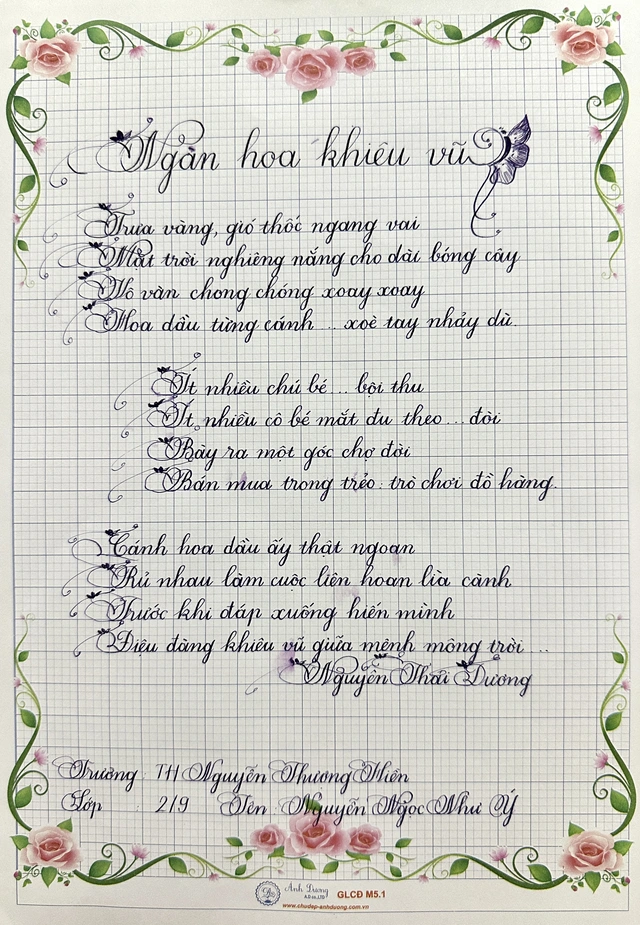 Ngàn hoa khiêu vũ
Trưa vàng, gió thốc ngang vai
Mặt trời nghiêng nắng cho dài bóng cây
Vô vàn chong chóng xoay xoay
Hoa dầu từng cánh ... xoè tay nhảy dù.
Ít nhiều chú bé ... bội thu
Ít nhiều cô bé mắt đu theo ... đòi
Bày ra một góc chợ đời
Bán mua trong trẻo: trò chơi đồ hàng.
Cánh hoa dầu ấy thật ngoan
Rủ nhau làm cuộc liên hoan lìa cành
Trước khi đáp xuống hiến mình
Diệu dàng khiêu vũ giữa mênh mông trời ...
Nguyễn Thái Dương
Trường: TH Nguyễn Thượng Hiền
Lớp : 2/9 Tên: Nguyễn Ngọc Như Ý
Anh Dương
A.D co.,LTD
GLCĐ M5.1
www.chudep-anhduong.com.vn